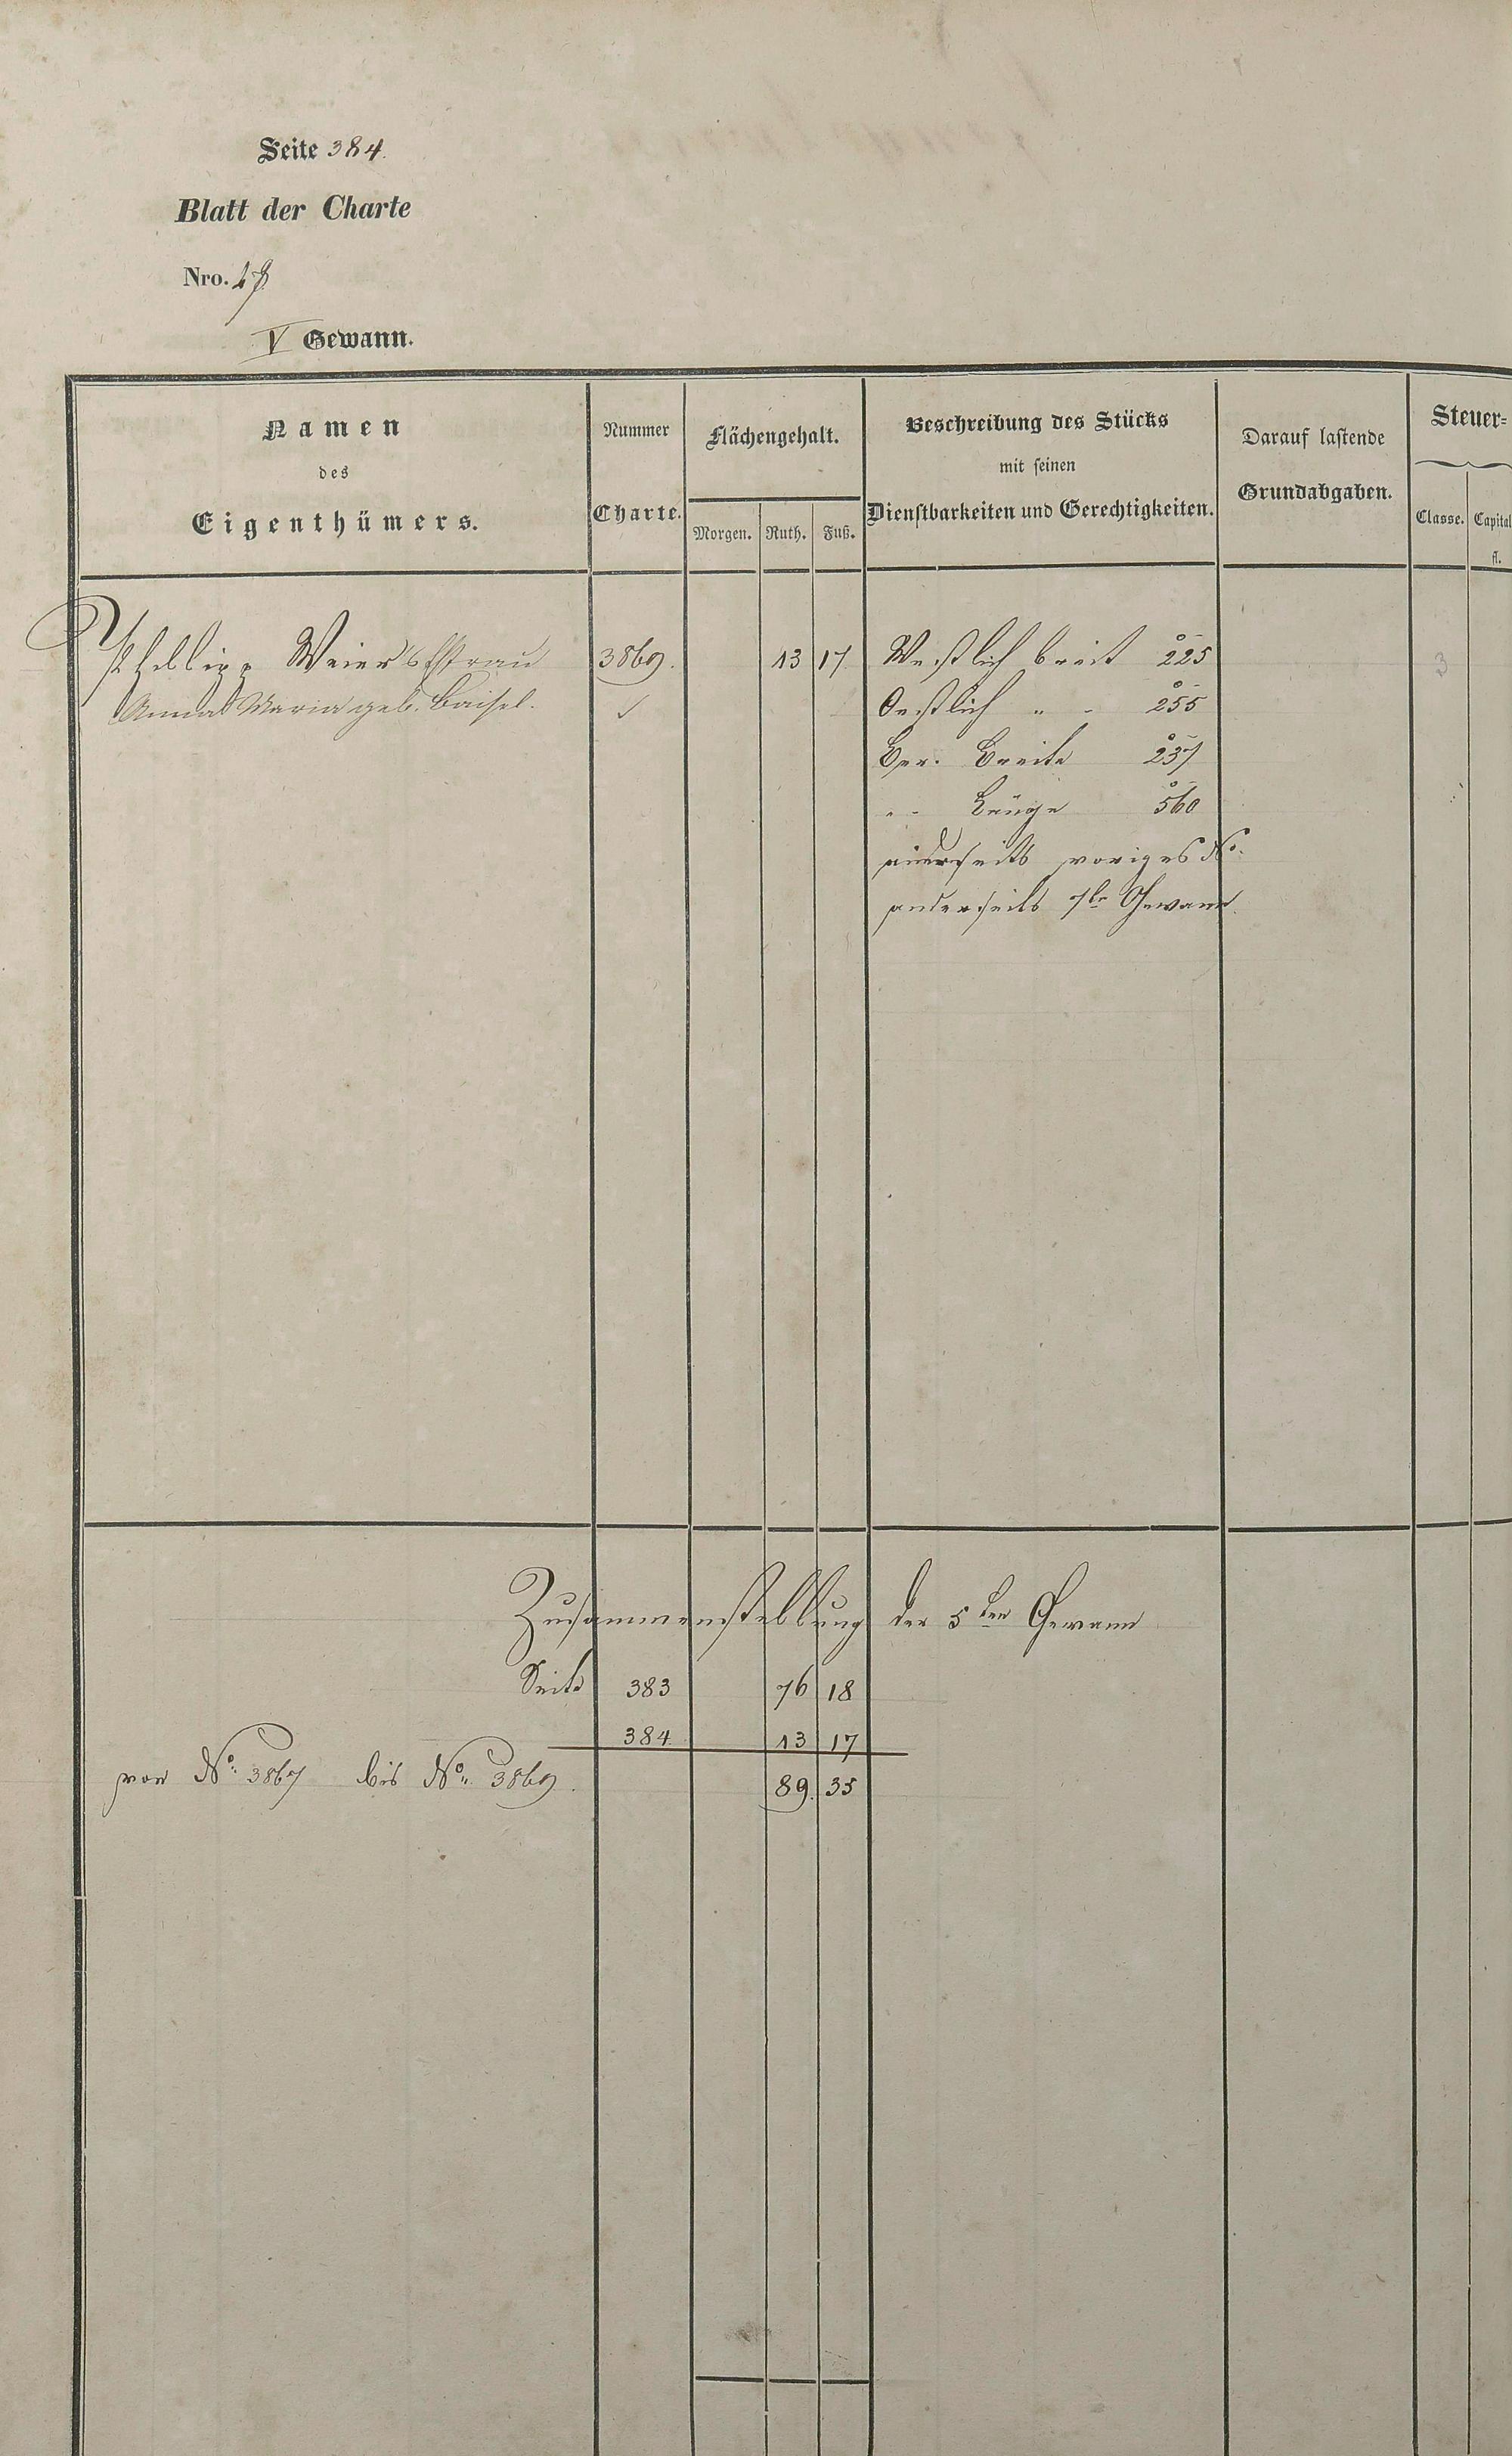 Seite 384.
Blatt der Charte
Nro.
V Gewann.
Namen des Eigenthümers.
Nummer Charte.
Flächengehalt.
Morgen. Ruth. Fuß.
Beschreibung des Stücks mit seinen Dienstbarkeiten und Gerechtigkeiten.
Darauf lastende Grundabgaben.
Steuer=
Classe. Capital fl.
Phillipp Weiers Ehfrau 3869. 13 17. Westlich breit 225 3
Anna Maria geb. Baisel. ✓ Oestlich „ - 255
Ber. Breite 237
„ - Länge 560
einerseits voriges No.
anderseits 7te Gewann.
Zusammenstellung der 5ten Gewann
Seite 383 76 18
384 13 17
von No. 3867 bis No. 3869. 89. 35